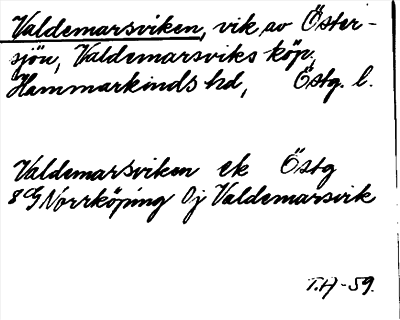 Valdemarsviken, vik av Öster-
sjön, Valdemarsviks köp,
Hammarkinds hd, Östg. l.
Valdemarsviken ek Östg
8 G Norrköping Öj Valdemarsvik
T.A-59.